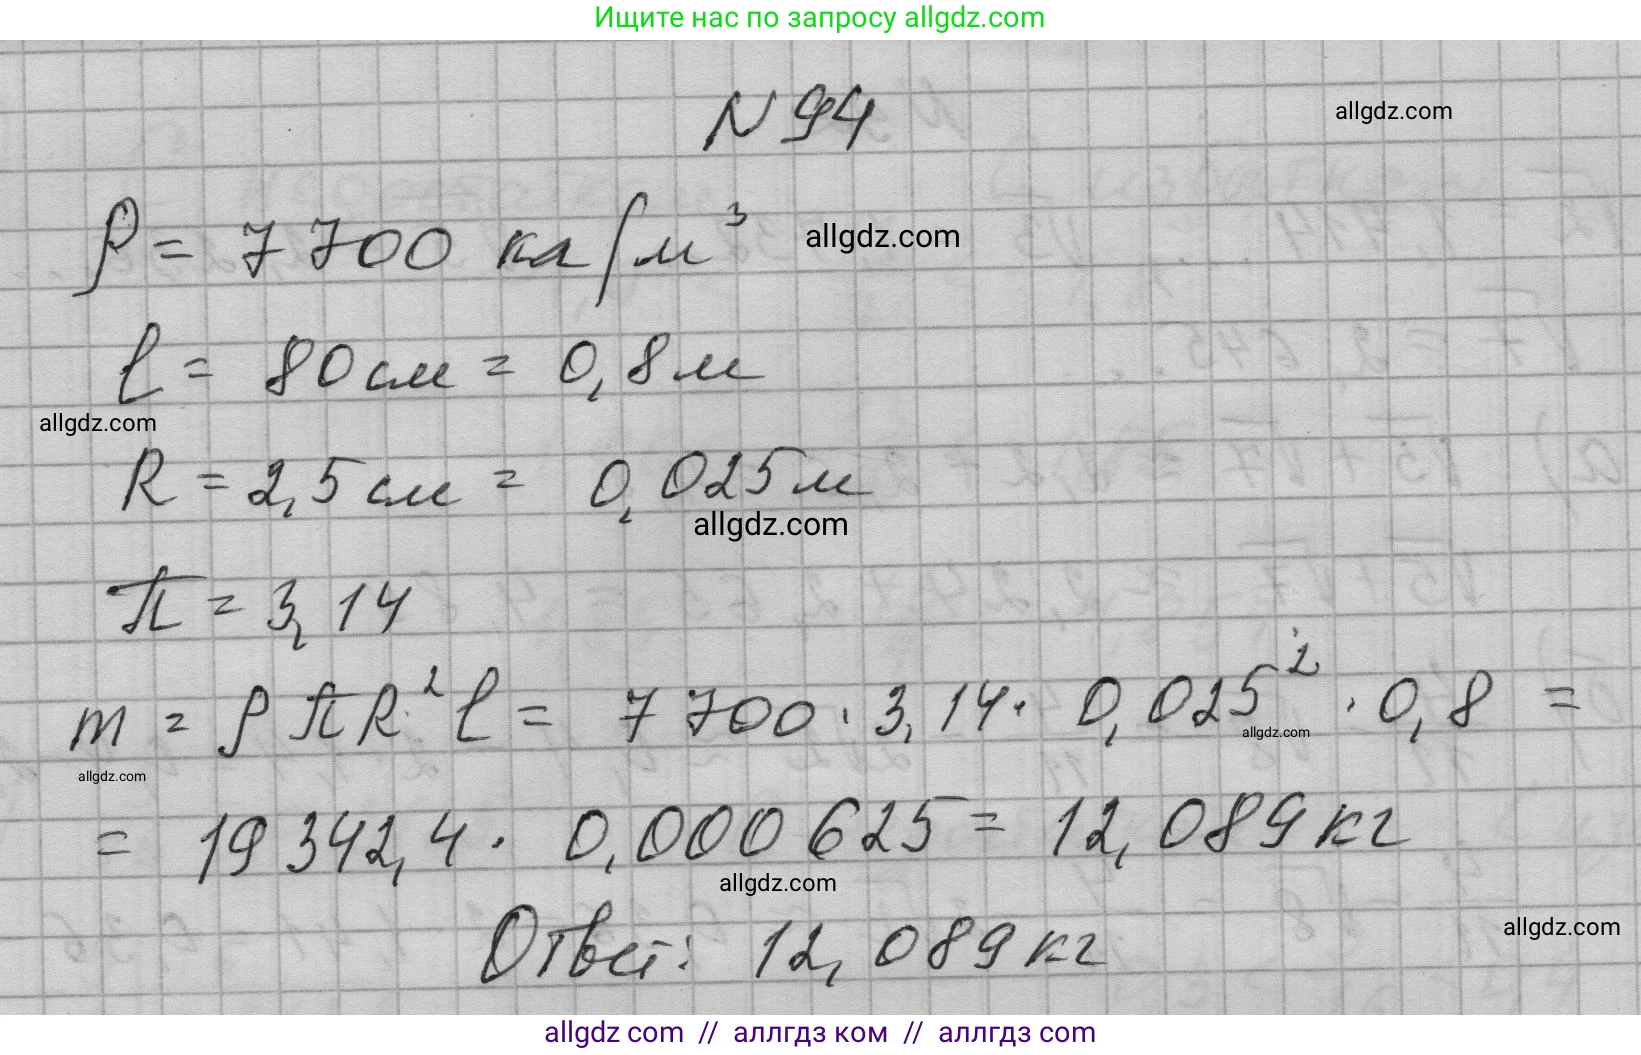 Ищите нас по запросу allgdz.com
N 94
allgdz.com
ρ = 7 700 кг/м³
allgdz.com
l = 80 см = 0,8 м
allgdz.com
R = 2,5 см = 0,025 м
allgdz.com
π = 3,14
m = ρπR²l = 7 700 · 3,14 · 0,025² · 0,8 =
allgdz.com
allgdz.com
= 19 342,4 · 0,000 625 = 12,089 кг
allgdz.com
Ответ: 12,089 кг
allgdz.com
allgdz com // аллгдз ком // аллгдз com